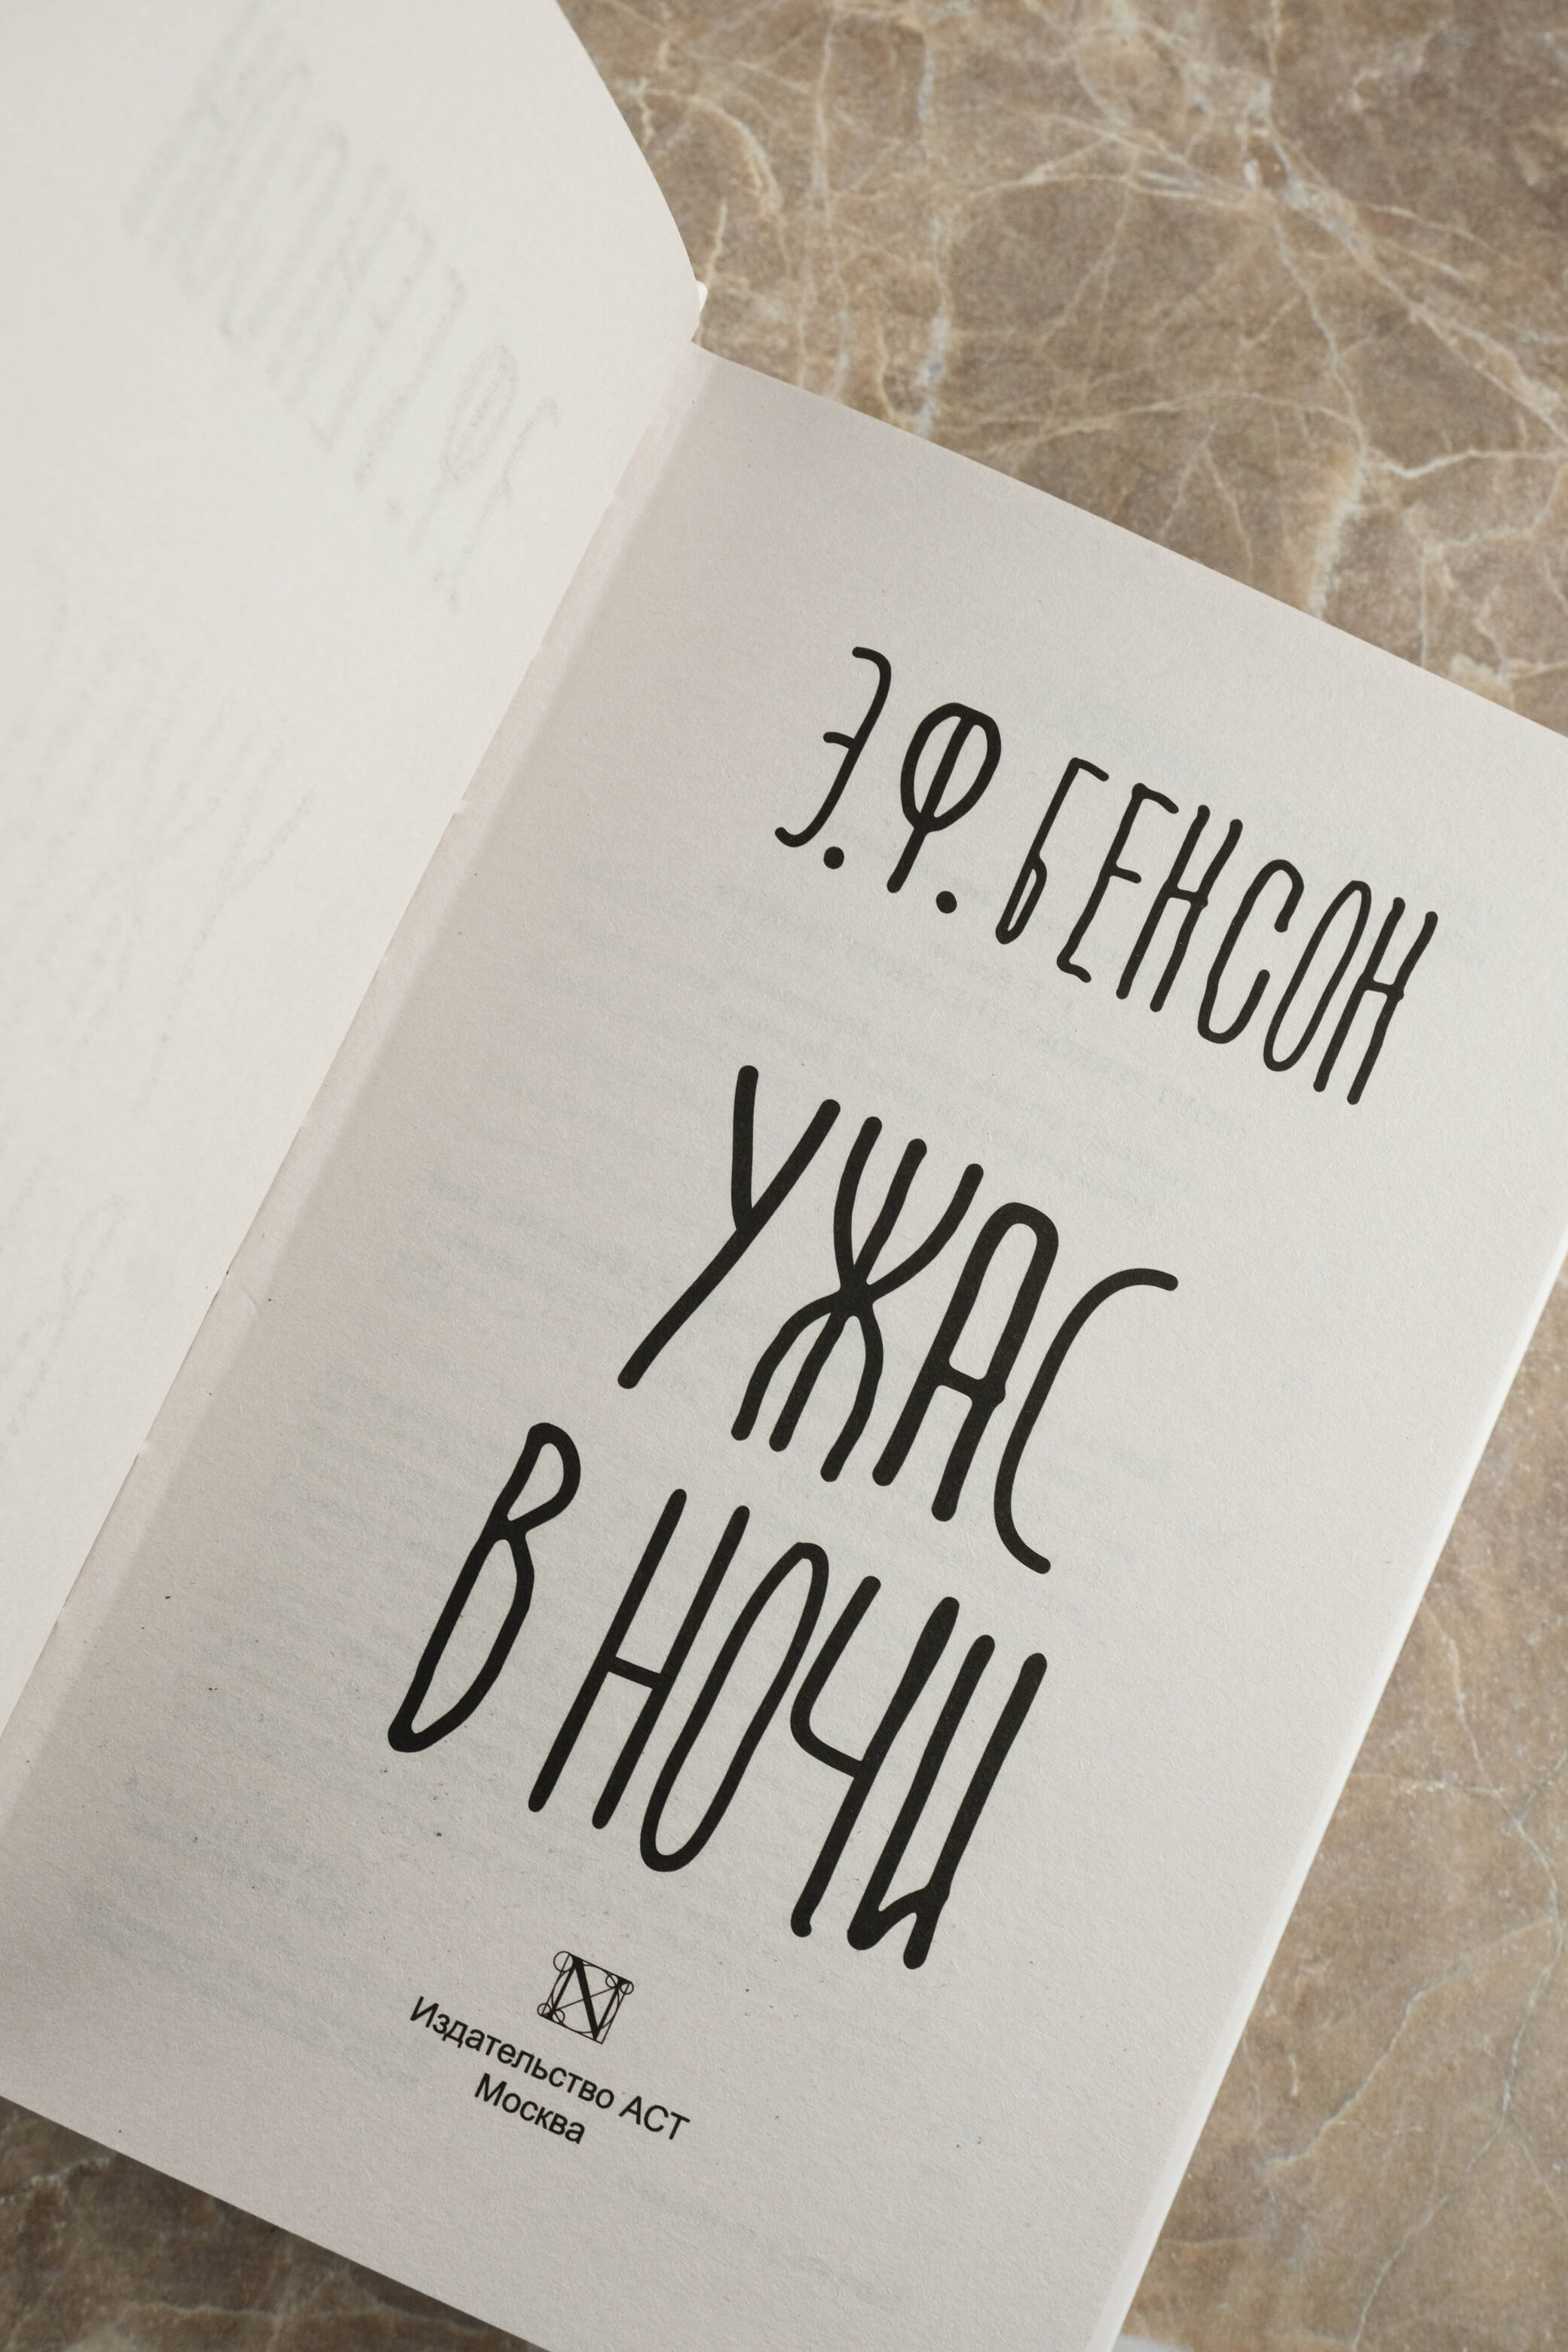 Э. Ф. БЕНСОН
УЖАС
В НОЧИ
Издательство АСТ
Москва